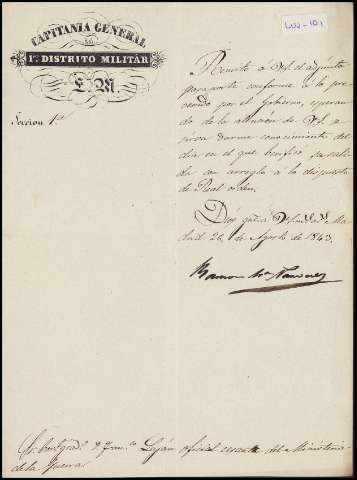 CAPITANIA GENERAL
DEL
1er. DISTRITO MILITAR
E. M.
Seccion 1ª
Remito á Vd. el adjunto
pasaporte conforme á lo pre-
venido por el Gobierno, esperan-
do de la atencion de Vd. se
sirva darme conocimiento del
dia en el que verifica su sali-
da con arreglo á lo dispuesto
de Real orden.
Dios gue. á Vd. m. a. Ma-
drid 26 de Agosto de 1843.
Ramon Ma. Narvaez
Sr. Cor. grad. D. Franco. Luján oficial cesante del Ministerio
de la Guerra